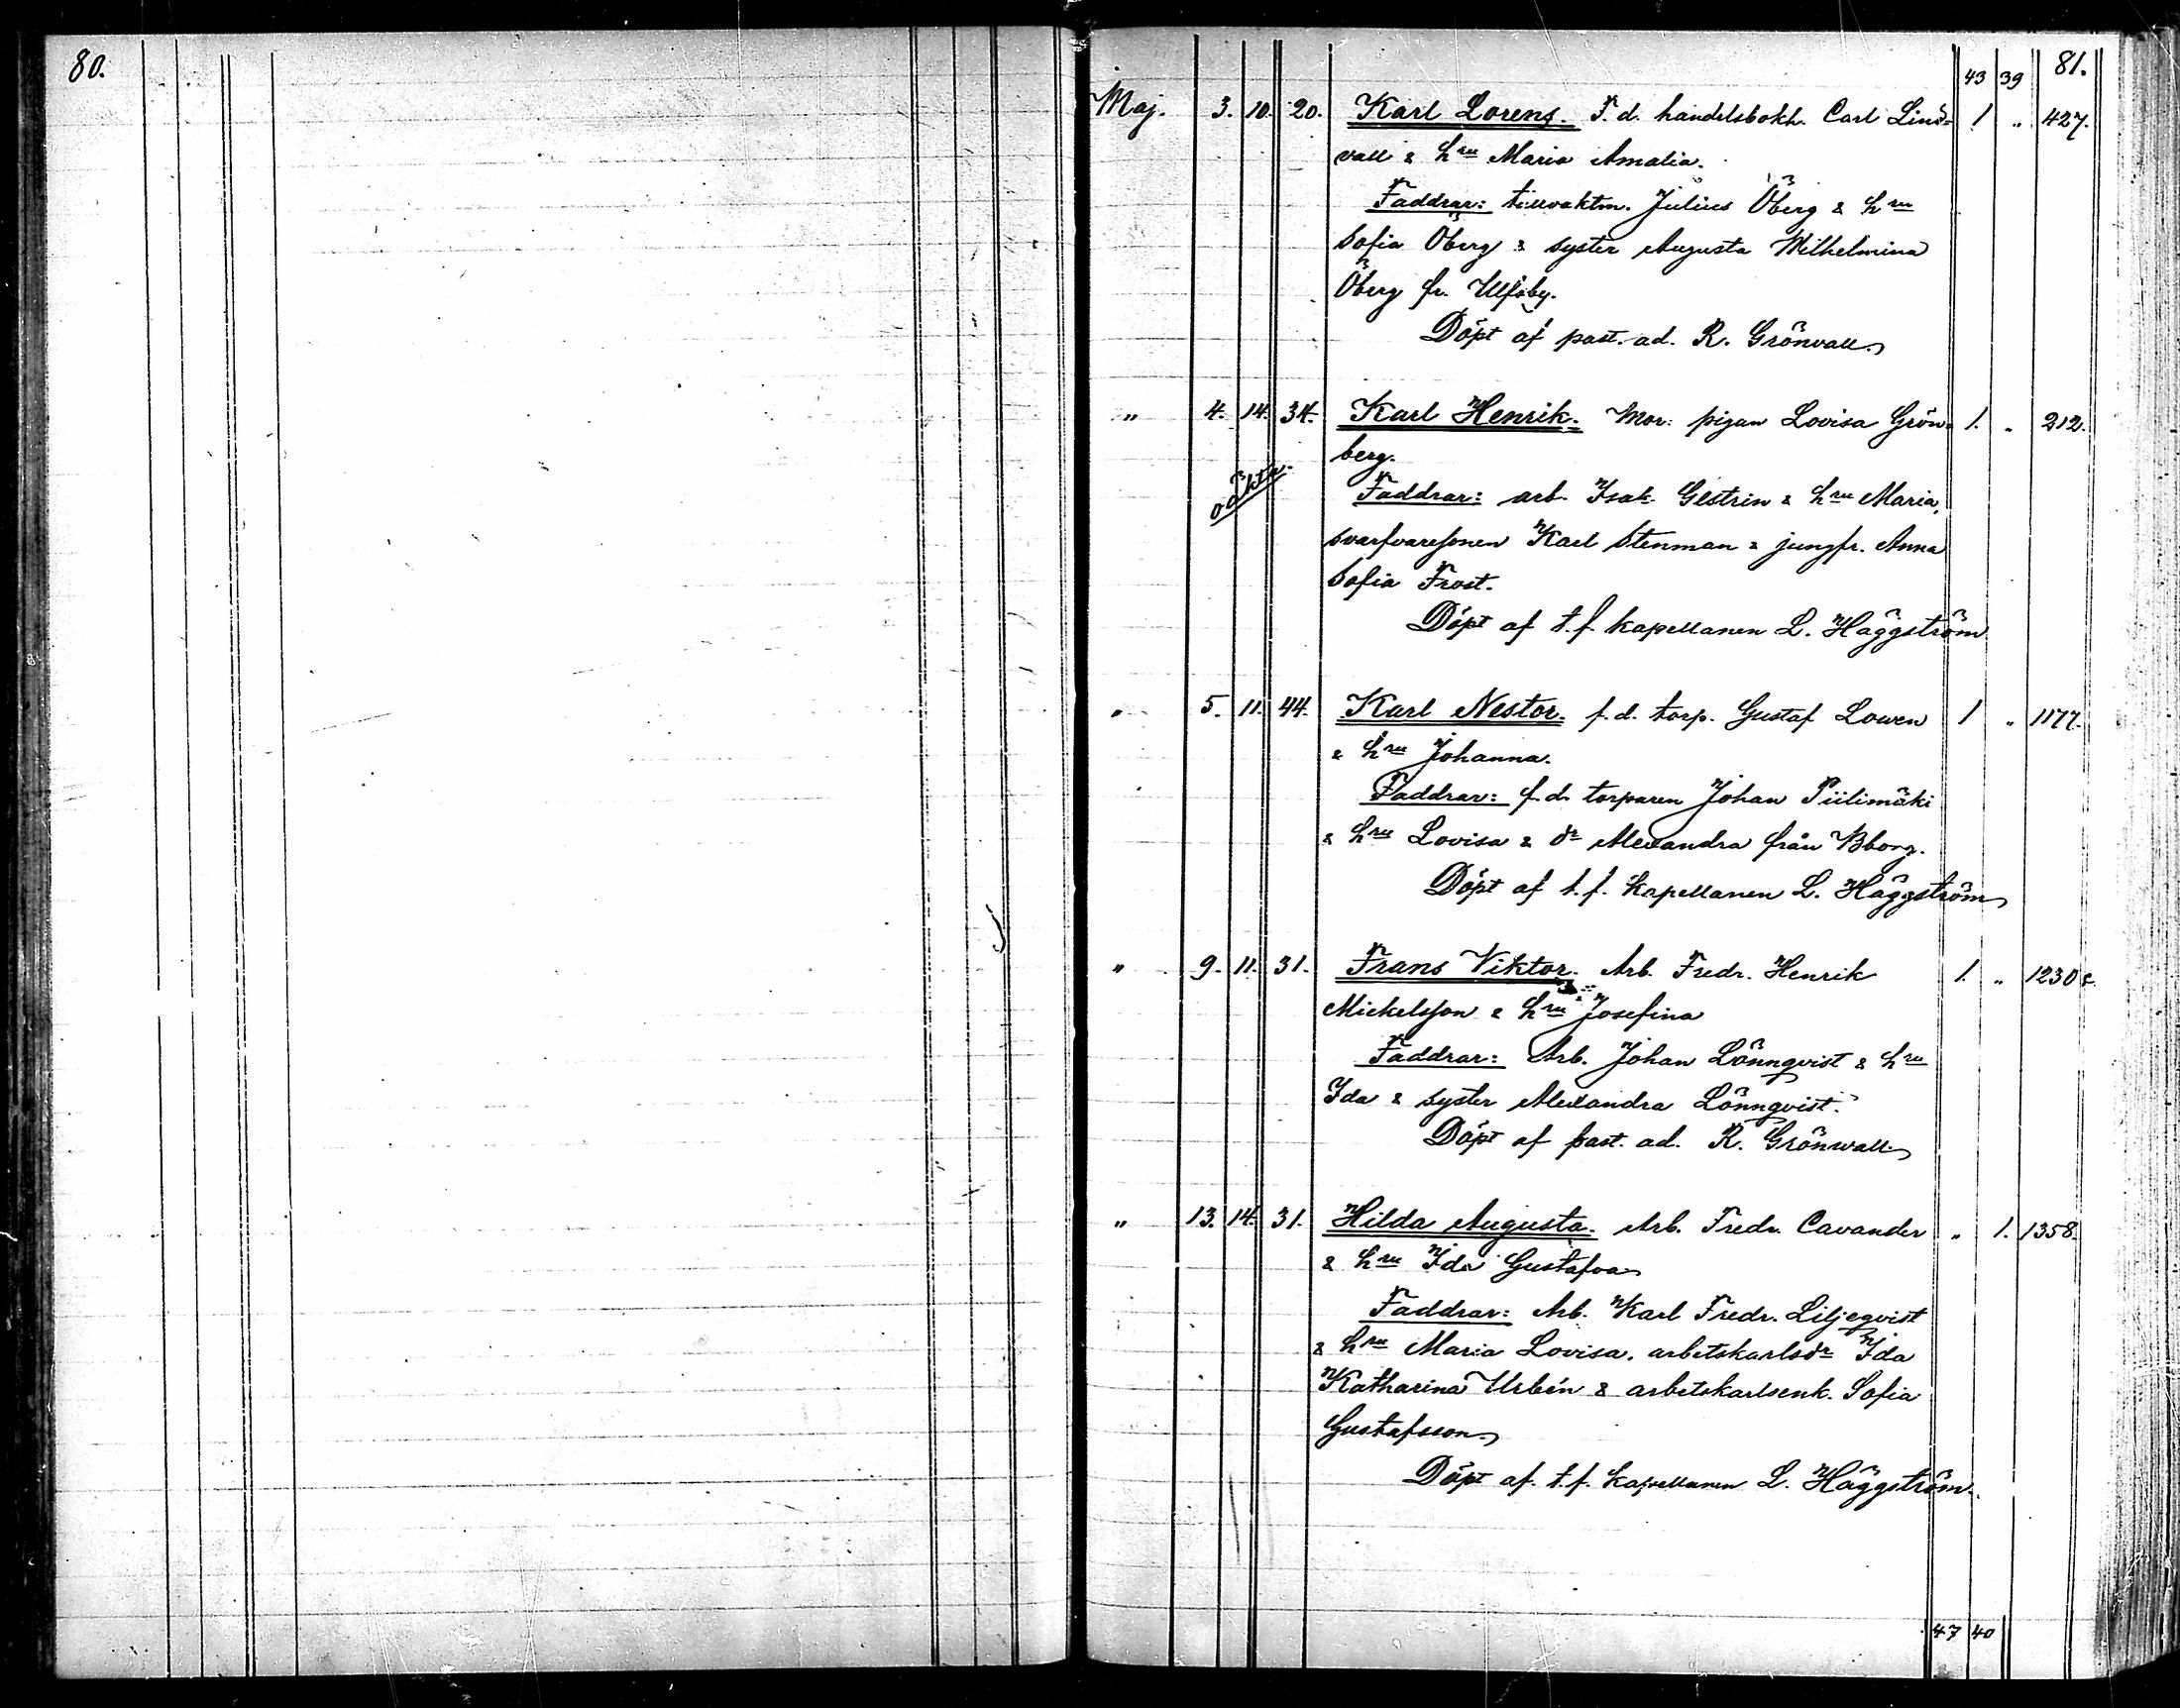 80.
81.
43 39
Maj. 3. 10. 20. Karl Lorens. F. d. handelsbokh. Carl Lind= 1 „ 427.
vall & hru Maria Amalia.
Faddrar: tullvaktm. Julius Öberg & hru
Sofia Öberg & syster Augusta Wilhelmina
Öberg fr. Ulfsby.
Döpt af past. ad. R. Grönvall
„ 4. 14. 34. Karl Henrik. Mor: pigan Lovisa Grön= 1. „ 212.
berg.
oäkta.
Faddrar: arb. Isak Gestrin & hru Maria,
svarfvaresonen Karl Stenman & jungfr. Anna
Sofia Frost.
Döpt af t.f. kapellanen L. Häggström
„ 5. 11. 44. Karl Nestor. f.d. torp. Gustaf Lowen 1 „ 1177.
& hru Johanna.
Faddrar: f.d. torparen Johan Piilimäki
& hru Lovisa & dr Alexandra från Bborg.
Döpt af t.f. kapellanen L. Häggström
„ 9. 11. 31. Frans Viktor. Arb. Fredr. Henrik 1. „ 1230 c.
Mickelsson & hru Josefina
Faddrar: Arb. Johan Lönnqvist & hru
Ida & syster Alexandra Lönnqvist.
Döpt af past. ad. R. Grönwall
„ 13. 14. 31. Hilda Augusta. Arb. Fredr. Cavander „ 1. 1358.
& hru Ida Gustafva
Faddrar: Arb. Karl Fredr. Liljeqvist
& hru Maria Lovisa, arbetskarlsdr Ida
Katharina Urbén & arbetskarlsenk. Sofia
Gustafsson
Döpt af t.f. kapellanen L. Häggström.
47 40